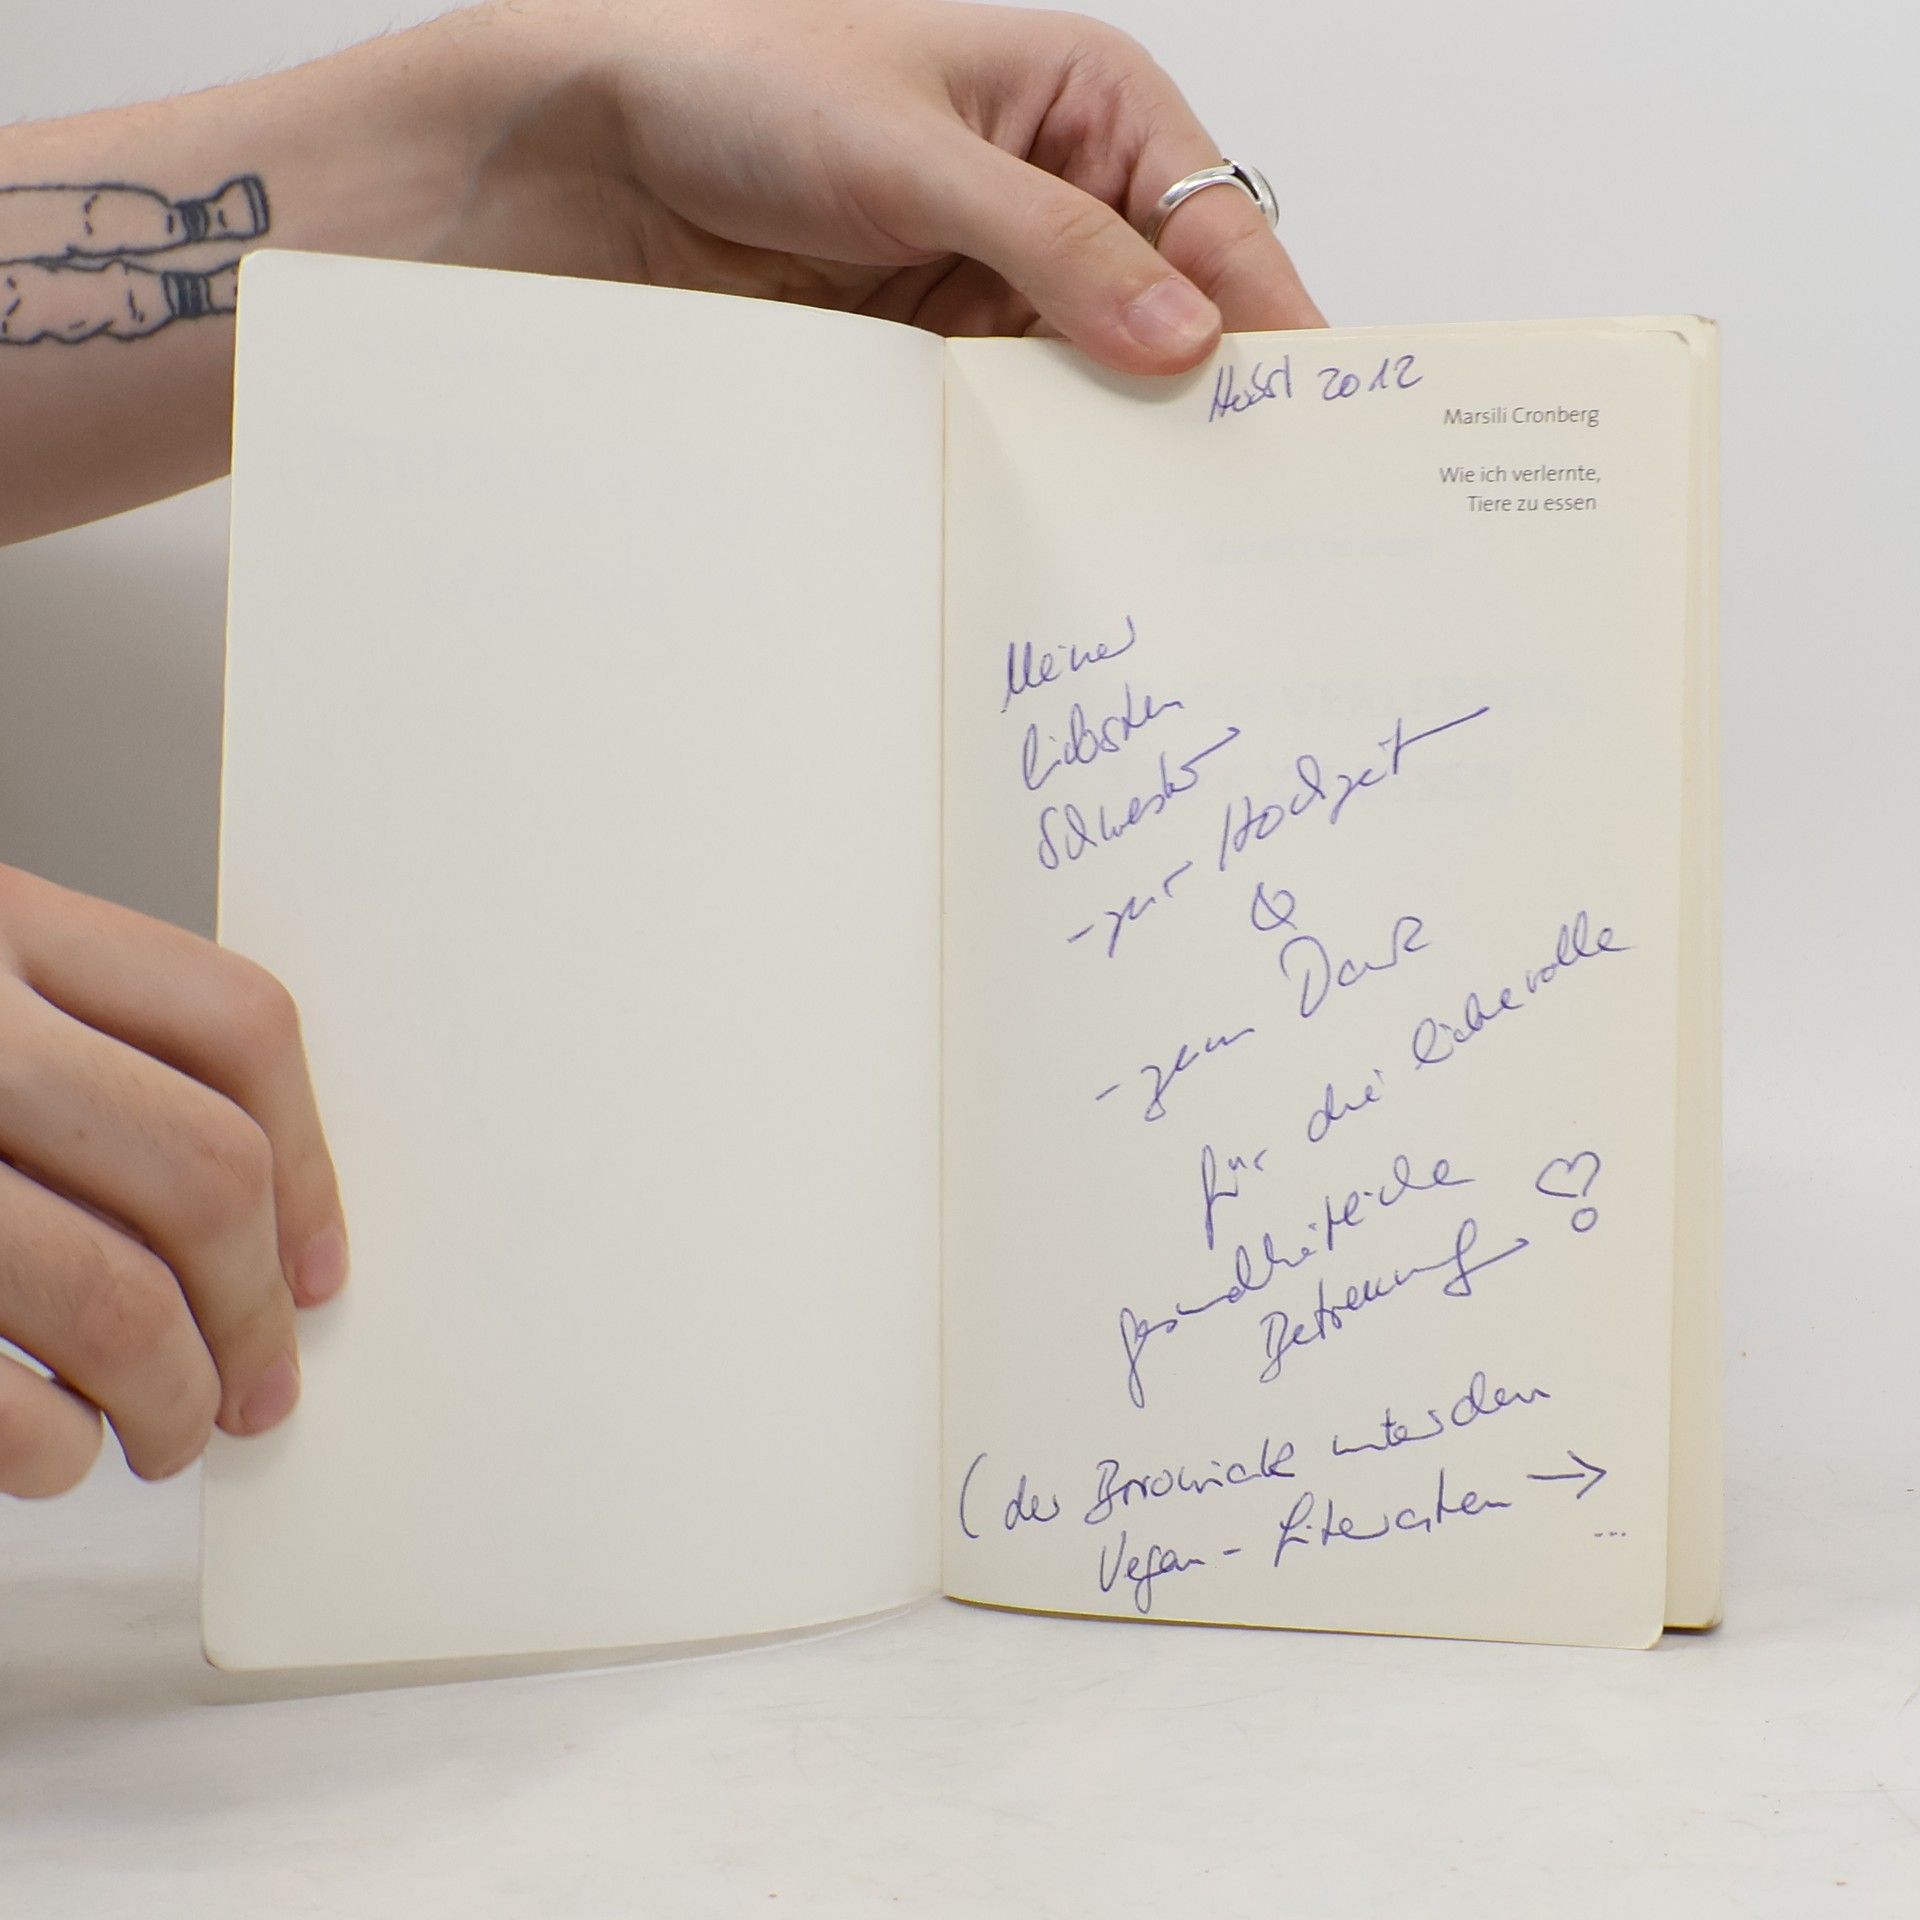 Herbst 2012
Marsili Cronberg
Wie ich verlernte,
Tiere zu essen
Meiner
liebsten
Schwester
- zur Hochzeit
&
- zum Dank
für die liebevolle
gesundheitliche
Betreuung !
( der unter den
Vegan - Literaten →
...